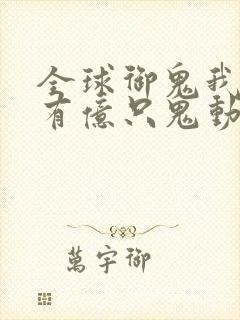 全球御鬼我
有億只鬼動
萬宇御